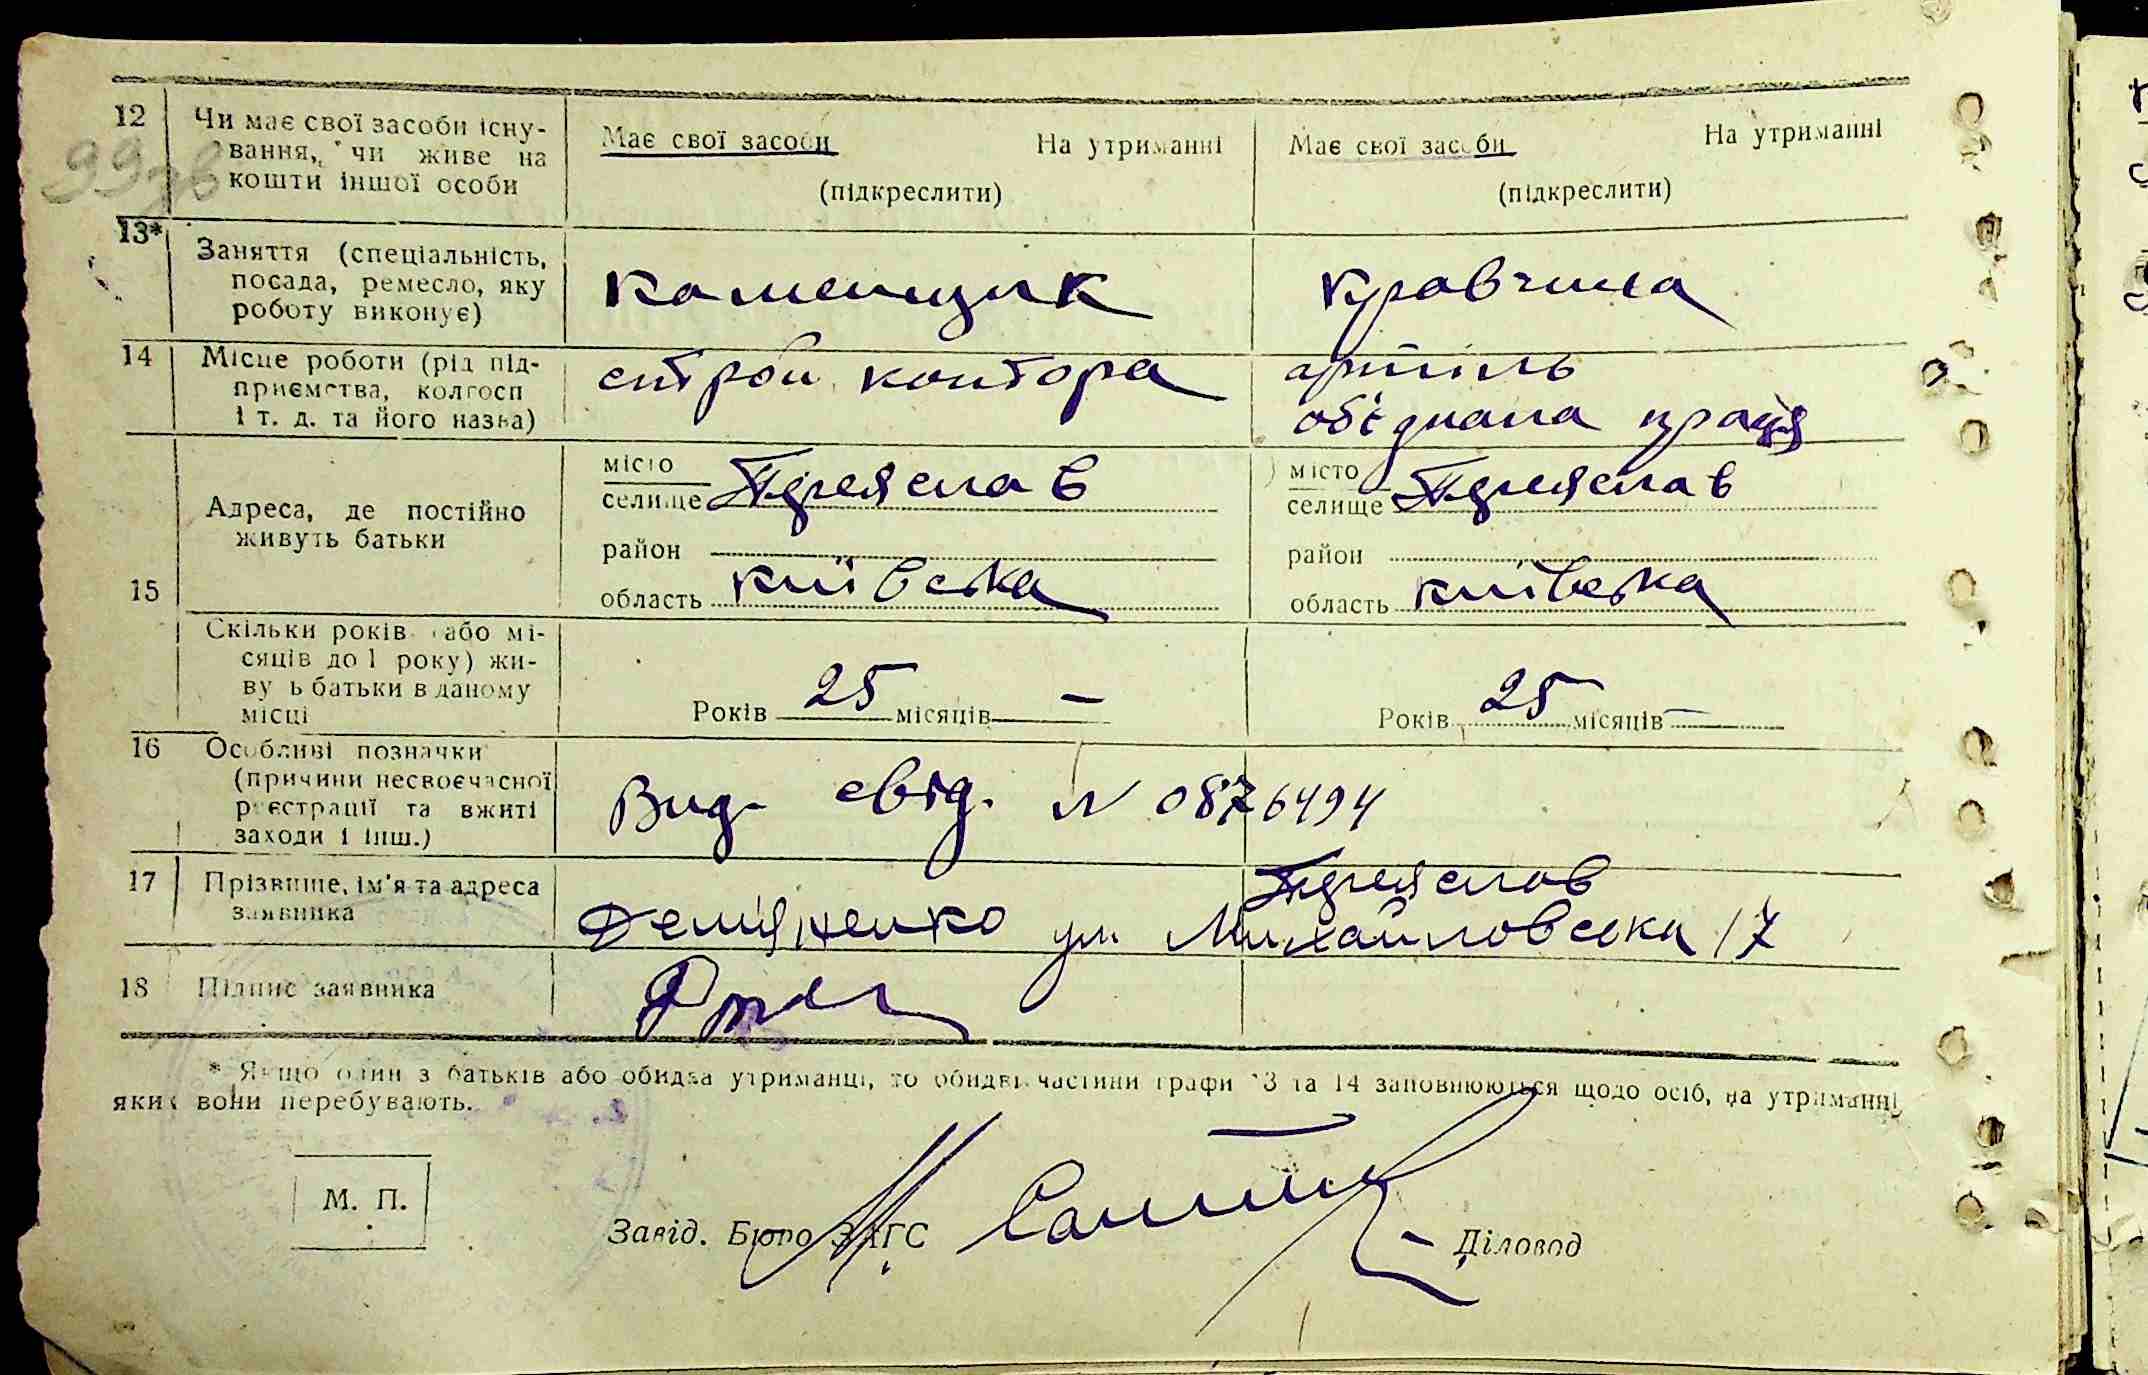 99зв
12 Чи має свої засоби існу-
вання, чи живе на
кошти іншої особи
Має свої засоби На утриманні
(підкреслити)
Має свої засоби На утриманні
(підкреслити)
13* Заняття (спеціальність,
посада, ремесло, яку
роботу виконує)
каменщик
кравчиха
14 Місце роботи (рід під-
приємства, колгосп
і т. д. та його назва)
строй контора
артіль
об'єднана праця
15 Адреса, де постійно
живуть батьки
місто
селище Переяслав
район
область київська
місто
селище Переяслав
район
область київська
Скільки років (або мі-
сяців до 1 року) жи-
вуть батьки в даному
місці
Років 25 місяців —
Років 25 місяців —
16 Особливі позначки
(причини несвоєчасної
реєстрації та вжиті
заходи і інш.)
Вид. свід. N 0876494
17 Прізвище, ім'я та адреса
заявника
Переяслов
Демяненко ул. Михайловська 17
18 Підпис заявника
* Якщо один з батьків або обидва утриманці, то обидві частини графи 13 та 14 заповнюються щодо осіб, на утриманні
яких вони перебувають.
М. П.
Завід. Бюро ЗАГС
Діловод